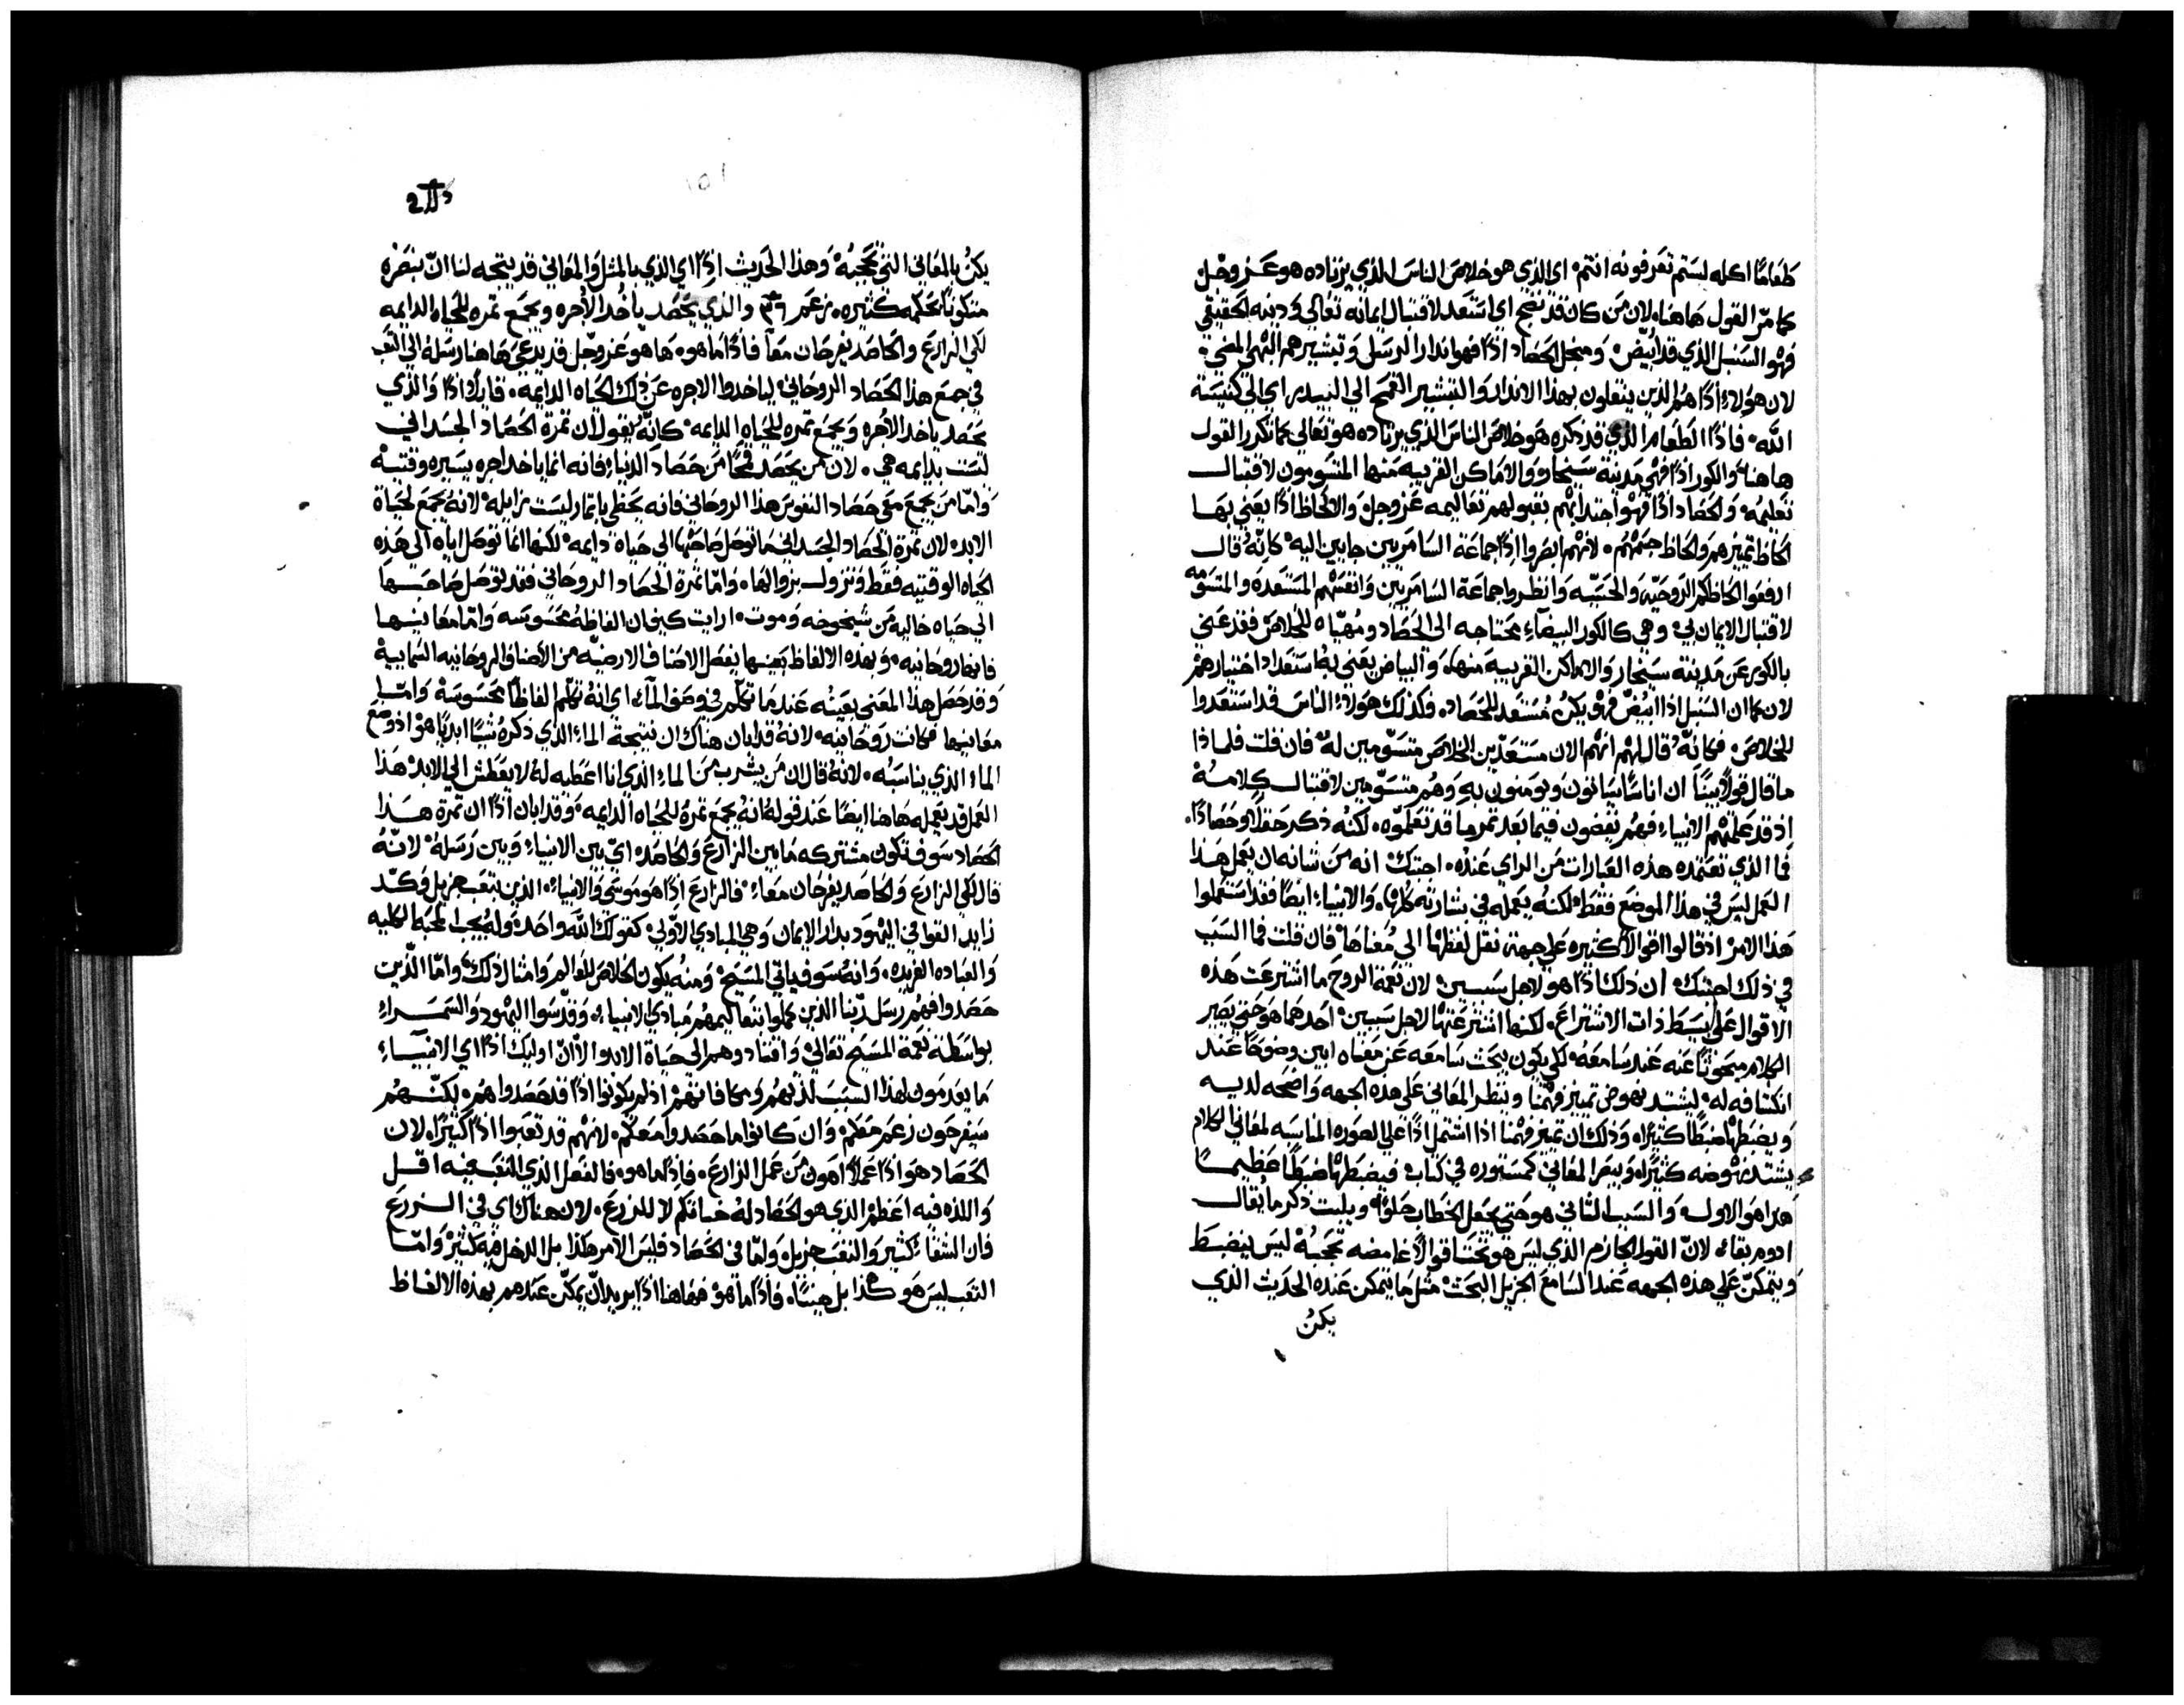 طعامًا اكله لستم تعرفونه انتم اي الذي هو خلاص الناس الذي يرتاده هو عز وجل
كما مرّ القول هاهنا، لان من كان قد نضج اي استعد لاقتبال ايمانه تعالي ودينه الحقيقي
فهو السنبل الذي قد ابيضّ ومنجل الحصاد اذًا فهو انذار الرسل وتبشيرهم البهي المضي
لان هولاء اذًا هم الذين ينقلون بهذا الانذار والتبشير القمح الي البيدر اي الي كنيسة
الله فاذًا الطعام الذي قد ذكره هو خلاص الناس الذي يرتاده هو تعالي كما تكرر القول
هاهنا والكور اذًا فهي مدينة سيخار والاماكن القريبه منها المتسومون لاقتبال
تعليمه والحصاد اذًا فهو اجتدابهم بقبولهم تعاليمه عز وجل والالحاظ اذًا يعني بها
الحاظ تمييزهم والحاظ جسمهم لانهم ابصروا اذًا جماعة السامريين جايين اليه كانّه قال
ارفعوا الحاظكم الروحيّه والحسّيه وانظروا جماعة السامريين وانفسهم المستعده والمتسومه
لاقتبال الايمان بي وهي كالكور البيضاء محتاجه الي الحصاد ومهيّاه للخلاص فقد عني
بالكور عن مدينة سيخار والاماكن القريبه منها، والبياض يعني به استعداد اختيارهم
لان كما ان السنبل اذا ابيضّ فهو يكن مستعد للحصاد. فكذلك هولاء الناس قد استعدوا
للخلاص فكانّه قال لهم انهم الان مستعدين للخلاص متسوّمين له فان قلت فلماذا
ما قال قولًا بيّنًا ان اناسًا سياتون ويومنون به وهم متسوّمين لاقتبال كلامه
اذ قد علمتهم الانبياء فهم يفضون فيما بعد ثمر ما قد تعلموه لكنه ذكر حقلًا وحصادًا.
فما الذي تعتمده هذه العبارات من الراي عنده اجبتك انه من شانه ان يعمل هذا
العمل ليس في هذا الموضع فقط لكنه يعمله في بشارته كلها والانبياء ايضًا فقد استعملوا
هذا الامر اذ قالوا اقوالًا كثيره علي جهة نقل لفظها الي معناها فان قلت فما السبب
في ذلك اجبتك ان ذلك اذًا هو لاجل سببين لان نعمة الروح ما اشترعت هذه
الاقوال علي بسيط ذات الاشتراع لكنها اشترعتها لاجل سببين احدهما هو حتي يصير
الكلام مبحوثًا عنه عند سامعه لكي يكون بحث سامعه عن معناه ابين وضوحًا عند
انكشافه له ليشتد نهوض تمييز فهمنا وينظر المعاني علي هذه الجهه واضحه لديه
ويضبطها ضبطًا كثيرًا وذلك ان تمييز فهمنا اذا اشتمل اذًا علي الصوره المناسبه لمعاني الكلام
يشتد نهوضه كثيرًا ويبصر المعاني كمسطوره في كتاب فيضبطها ضبطًا عظيمًا
هذا هو الاول والسبب الثاني هو حتي يجعل الخطاب حلوًا ويلبث ذكر ما يقال
ادوم بقاء لانّ القول الجازم الذي ليس هو تحت اقوال غامضه تحجبه ليس ينضبط
ويتمكن علي هذه الجهه عند السامع الجزيل البحث مثل ما يتمكن عنده الحديث الذي
يكن
يكن بالمعاني التي تحجبه وهذا الحديث اذًا اي الذي بالمثل والمعاني قد يتجه لنا ان نبصره
متكونًا بحكمه كثيره زعم والذي يحصد ياخد الاجره ويجمع ثمره للحياه الدايمه
لكي الزارع والحاصد يفرحان معًا فاذًا ما هو ها هو عز وجل قد يدعي هاهنا رسله الي التعب
في جمع هذا الحصاد الروحاني لياخدوا الاجره عن ذلك الحياه الدايمه. قايلًا اذًا والذي
يحصد ياخد الاجره ويجمع ثمره للحياه الدايمه كانّه يقول ان ثمرة الحصاد الجسداني
ليست بدايمه هي. لان من يحصد قمحًا من حصاد الدنيا، فانه انما ياخد اجره يسيره وقتيه
وامّا من يجمع معي حصاد النفوس هذا الروحاني فانه يحظي باثمار ليست بزايله لانه يجمع لحياة
الابد لان ثمرة الحصاد الجسداني ما توصل صاحبها الي حياة دايمه لكنها انما توصل اياه الي هذه
الحياه الوقتيه فقط وتزول بزوالها. وامّا ثمرة الحصاد الروحاني فقد توصل صاحبها
الي حياه خاليه من شيخوخه وموت ارايت كيف ان الفاظه محسوسه وامّا معانيها
فانها روحانيه وبهذه الالفاظ بعينها يفصل الاصناف الارضيّه من الاصناف الروحانيه السمايية
وقد حصل هذا المعني بعينه عندما تكلم في وصف الماء، اي انه تكلم الفاظًا محسوسة وامّا
معانيها فكانت روحانيه لانه قد ابان هناك ان نتيجة الماء الذي ذكره شيًا ابديًا هو اذ وضع
الماء الذي يناسبه. لانه قال ان من يشرب من الماء الذي انا اعطيه له لا يعطش الي الابد هذا
العمل قد يعمله هاهنا ايضًا عند قوله انه يجمع ثمره للحياه الدايمه وقد ابان اذًا ان ثمرة هذا
الحصاد سوف تكون مشتركه ما بين الزارع والحاصد اي بين الانبياء وبين رسله لانّه
قال لكي الزارع والحاصد يفرحان معًا. فالزارع اذًا هو موسي والانبياء الذين بتعب جزيل وكدّ
زايد القوا في اليهود بدار الايمان وهي المبادي الاولي كقولك الله واحد وله يجب المحبه الكليه
والعباده الفريده وانه سوف ياتي المسيح ومنه يكون الخلاص للعالم وامثال ذلك وامّا الّذين
حصدوا فهم رسل ربنا الذين كملوا بتعاليمهم مبادي الانبياء وقدّسوا اليهود والسمراء
بواسطة نعمة المسيح تعالي واقتادوهم الي حياة الابد والّا ان اوليك اذًا اي الانبياء
ما يعدمون لهذا السبب لذتهم ومكافاتهم اذ لم يكونوا اذًا قد حصدوا هم لكنّهم
سيفرحون زعم معكم وان كانوا ما حصدوا معكم. لانهم قد تعبوا اذًا كثيرًا، لان
الحصاد هو اذًا عملًا اهون من عمل الزارع. فاذًا ما هو، فالفعل الذي التعب فيه اقل
واللذه فيه اعظم الذي هو الحصاد له خباتكم لا للزرع. لان هناك اي في الزرع
فان الشقا كثير والتعب جزيل وامّا في الحصاد فليس الامر هكذا بل الدخل فيه كثير وامّا
التعب ليس هو كذا بل هينًا. فاذًا ما هو فهاهنا اذًا يريد ان يمكّن عندهم بهذه الالفاظ